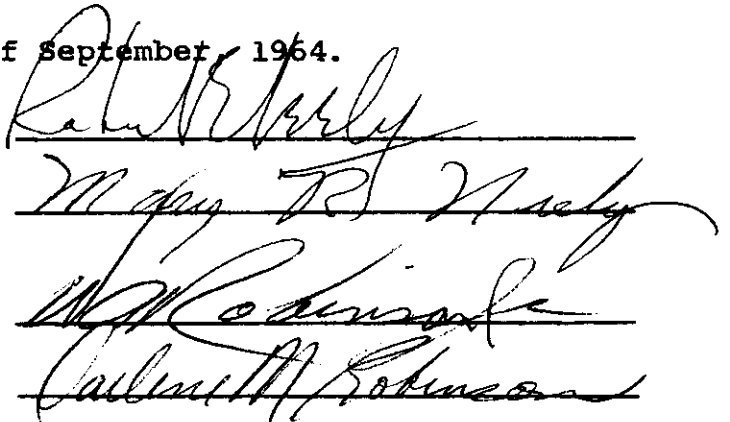 f September, 1964.
Robert E Neely
Mary R. Neely
W M Robinson Jr
Darlene M Robinson